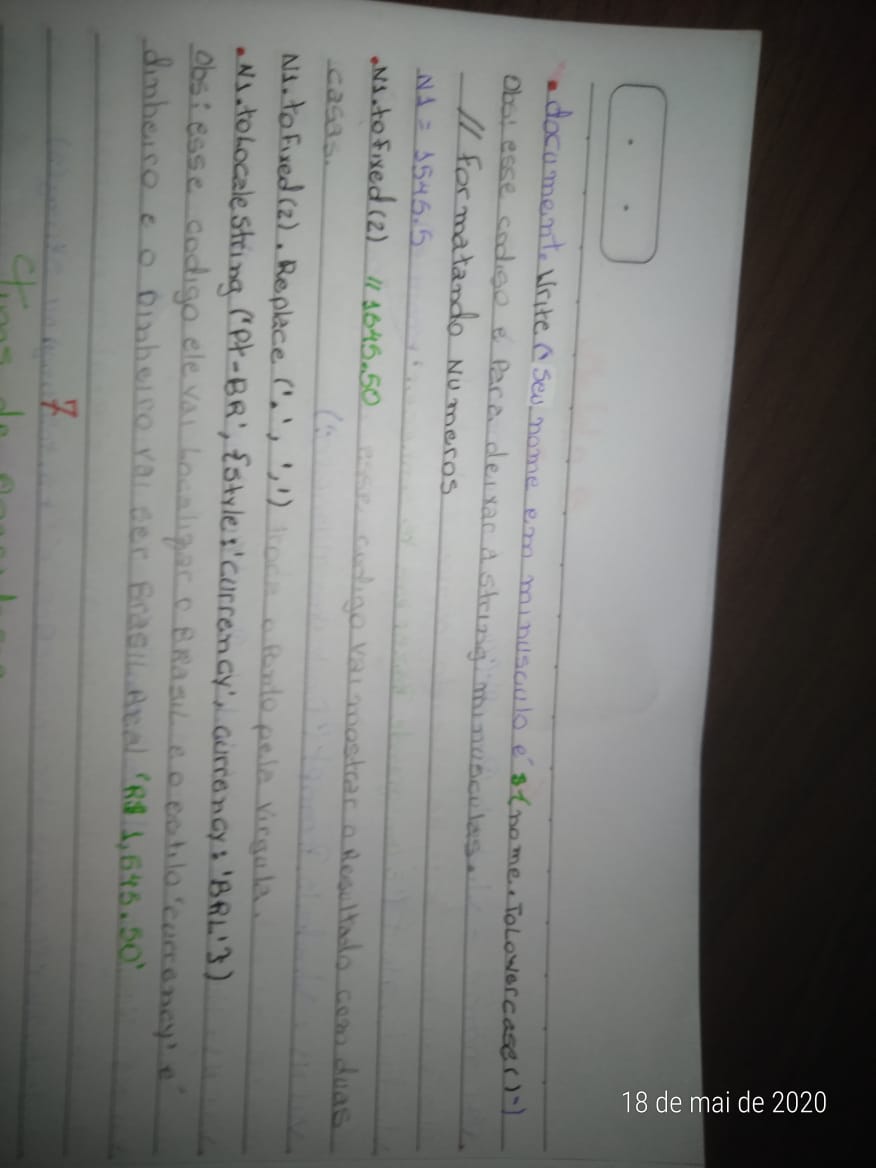 .document.Write (`seu nome em minusculo é ${nome.ToLowercase()`)
Obs: esse codigo é Para deixar A string minusculas.
// Formatando Numeros
N1 = 1545.5
.N1.toFixed(2) // 1545.50 esse codigo vai mostrar o Resultado com duas
casas.
N1.toFixed(2).Replace('.', ',') troca o Ponto pela Virgula.
.N1.toLocalestring('Pt-BR', {style:'currency', currency:'BRL'})
Obs: esse codigo ele vai Localizar o BRASIL e o estilo 'currency' é
dinheiro e o Dinheiro vai ser BrasiL Real 'R$ 1,545.50'
7
18 de mai de 2020